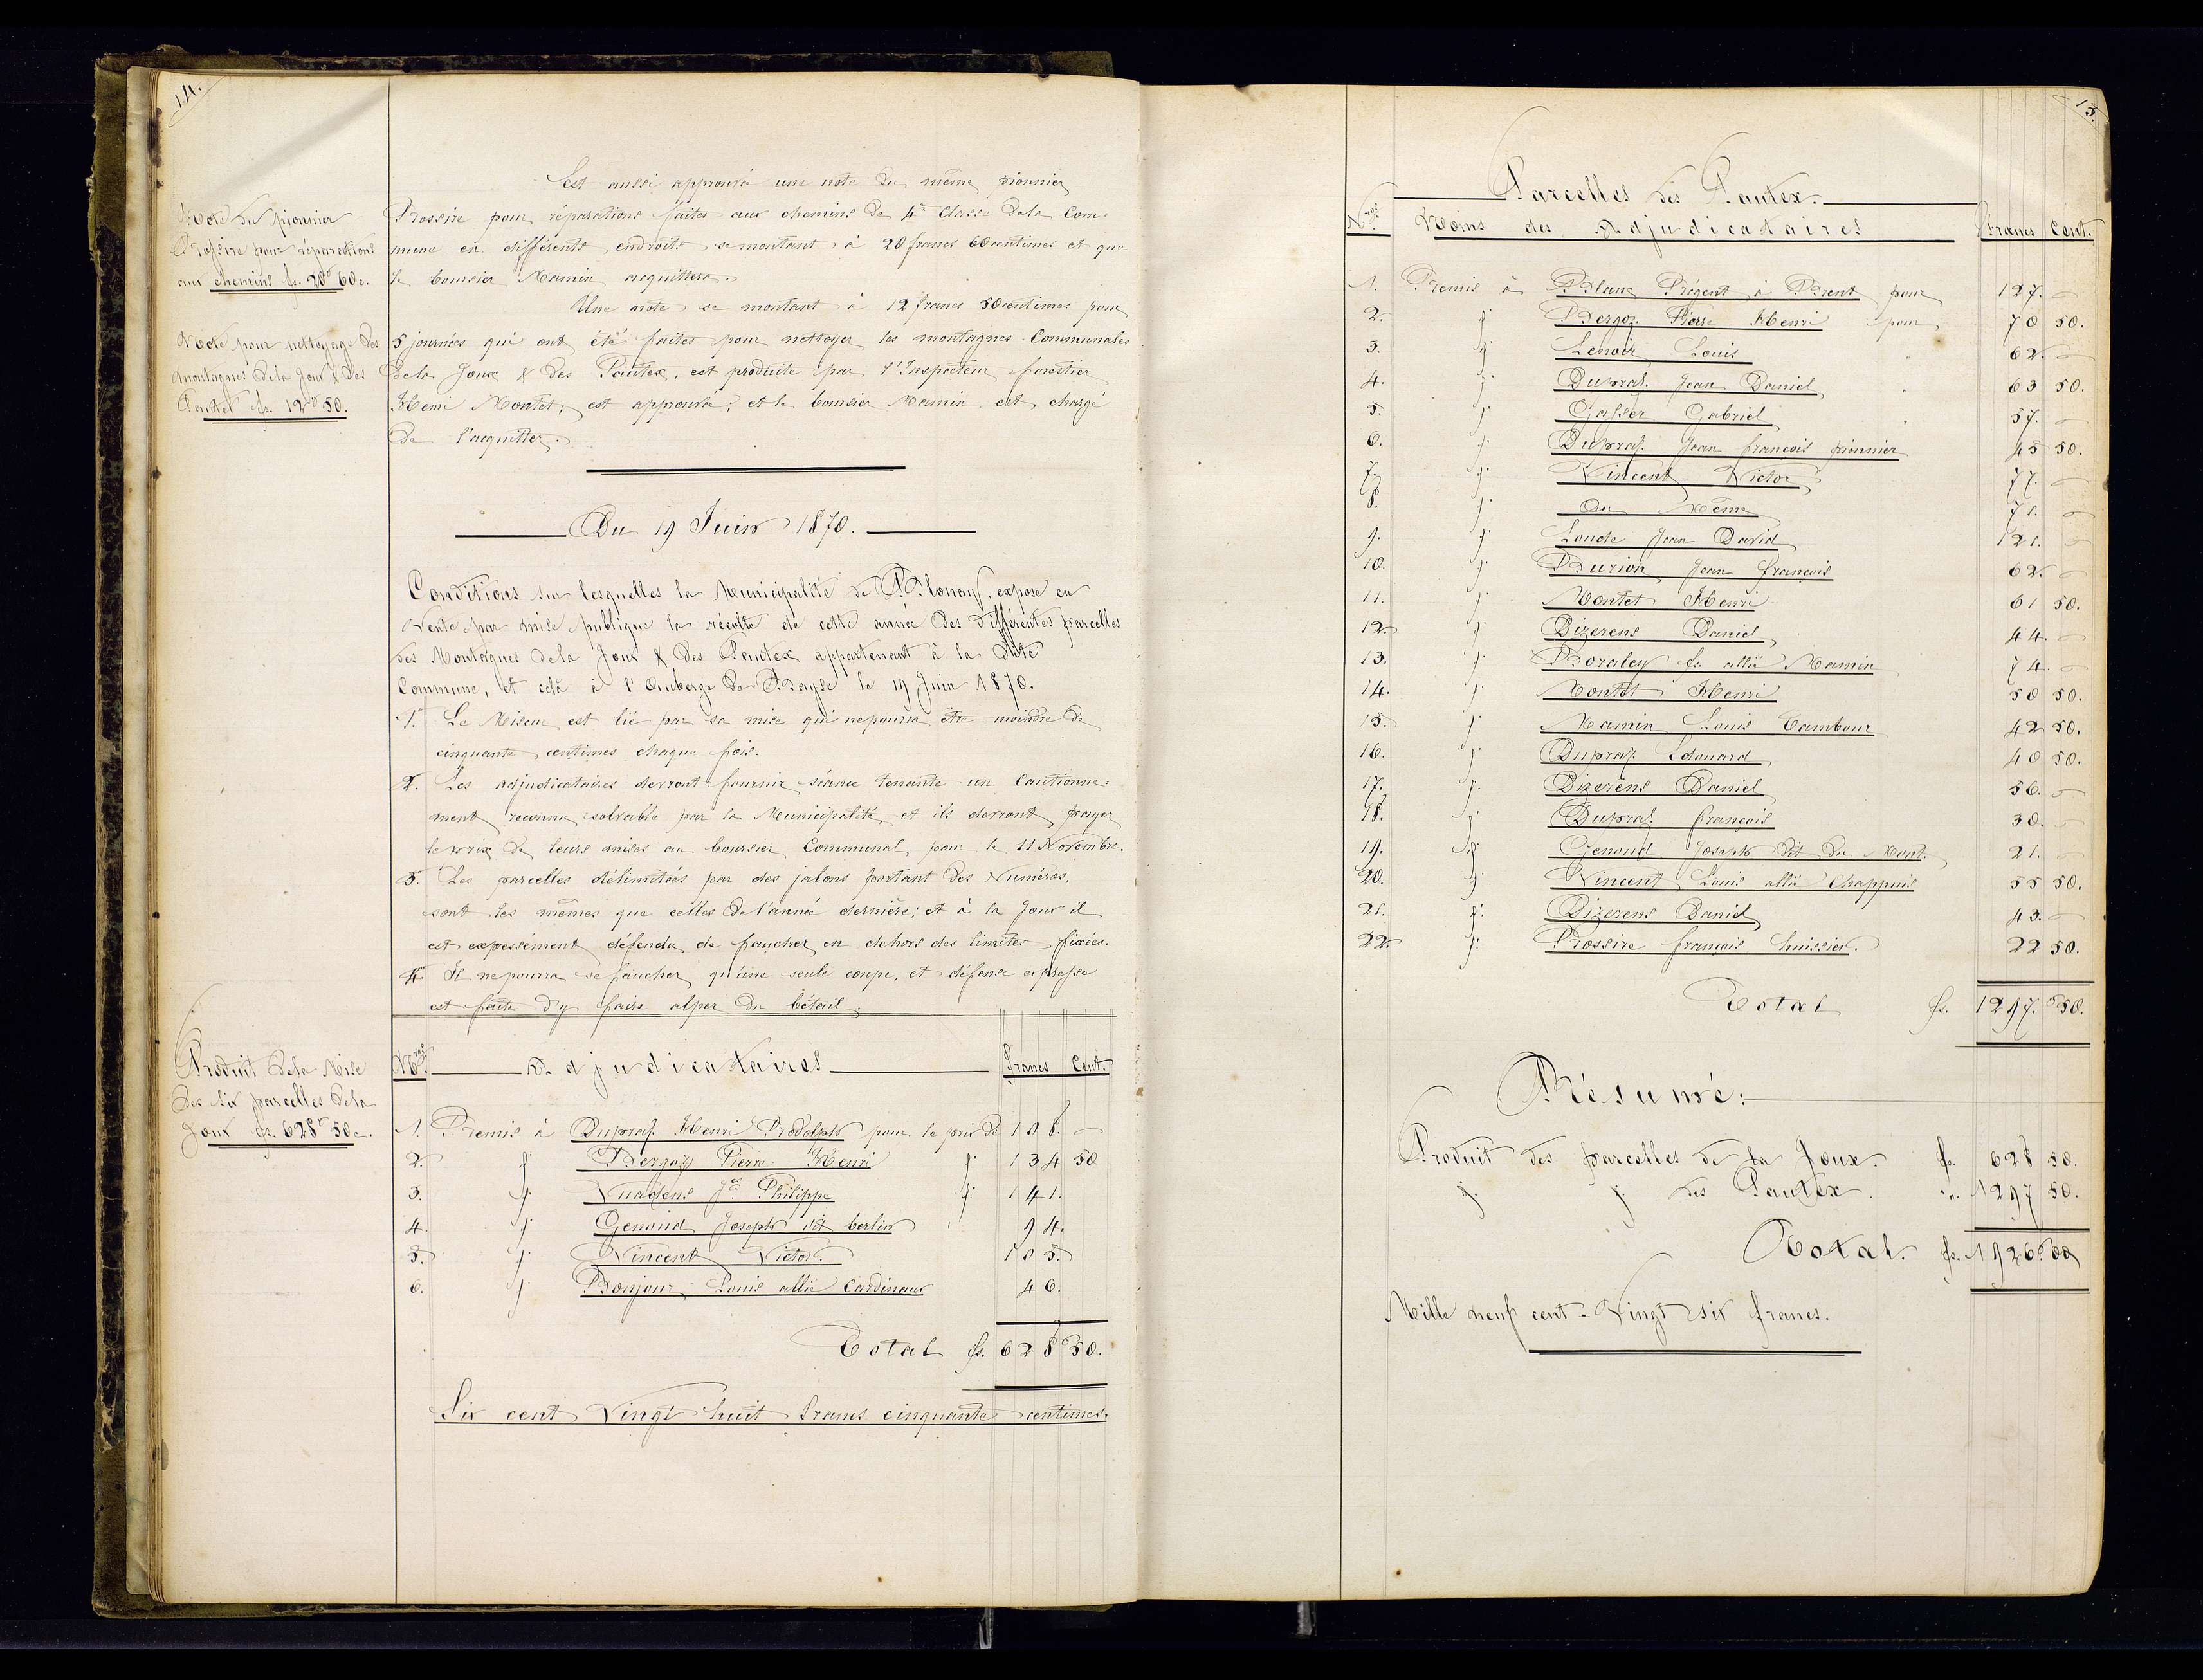 14.
Est aussi approuvé une note du même pionnier
Rossire pour réparations faites aux chemins de 4e Classe dela Com=
mune en différents endroits se montant à 20 francs 60 centimes et que
le boursier Mamin acquittera.
Note du pionnier
Rossire pour réparations
aux chemins fs. 20 60 c.
Une note se montant à 12 francs 50 centimes pour
5 journées qui ont été faites pour nettoyer les montagnes Communales
dela Joux & des Pautex, est produite par l'Inspecteur forestier
Henri Montet; est approuvée; et le boursier Mamin est chargé
de l'acquitter.
Note pour nettoyage des
montagnes dela Joux & des
Pautex fs. 12 50.
Du 19 Juin 1870.
Conditions sur lesquelles la Municipalité de Blonay, expose en
Vente par mise publique la récolte de cette année des différentes parcelles
des Montagnes dela Joux & des Pautex appartenant à la dite
Commune, et celà à l'Auberge de Brayse le 19 Juin 1870.
1. Le Miseur est lié par sa mise qui ne pourra être moindre de
cinquante centimes chaque fois.
2. Les adjudicataires devront fournir séance tenante un Cautionne=
ment reconnu solvable par la Municipalité et ils devront payer
le prix de leurs mises au boursier Communal, pour le 11 Novembre.
3. Les parcelles délimitées par des jalons portant des Numéros,
sont les mêmes que celles de l'année dernière; et à la Joux il
est expessément défendu de faucher en dehors des limites fixées.
4. Il ne pourra se faucher qu'une seule coupe, et défense expresse
est faite d'y faire alper du bétail.
Produit dela Mise
des six parcelles dela
Joux fs. 628 50 c.
Nros Adjudicataires Francs Cent.
1. Remis à Dupraz Henri Rodolph pour le prix de 108. –
2. " Bergoz Pierre Henri " 134 50
3. " Vuadens Jn Philippe " 141.
4. " Genoud Joseph dit berlin " 94.
5. " Vincent Victor. 105.
6. " Bonjour Louis allié Cardinaux 46.
Total fs. 628 50.
Six cent Vingt huit francs cinquante centimes.
15.
Parcelles des Pautex.
Nros Noms des Adjudicataires Francs Cent.
1. Remis à Blanc Régent à Brent pour 127. –
2. " Bergoz Pierre Henri pour 70 50.
3. " Lenoir Louis 62. –
4. " Dupraz Jean Daniel 63 50.
5. " Gasser Gabriel 57. –
6. " Dupraz Jean françois pionnier 45 50.
7. " Vincent Victor 77. –
8. " Au Même 71. –
9. " Loude Jean David 121. –
10. " Burion Jean françois 62. –
11. " Montet Henri 61 50.
12. " Dizerens Daniel 44. –
13. " Boraley fs. allié Mamin 74. –
14. " Montet Henri 50 50.
15. " Mamin Louis Tambour 42 50.
16. " Dupraz Edouard 40 50.
17. " Dizerens Daniel 56. –
18. " Dupraz françois 30. –
19. " Genoud Joseph dit du Mont. 21. –
20. " Vincent Louis allié Chappuis 55 50.
21. " Dizerens Daniel 43. –
22. " Rossire françois huissier. 22 50.
Total fs. 1297. 50.
Résumé:
Produit des parcelles de la Joux. fs. 628 50.
" " des Pautex. " 1297 50.
Total. fs. 1926. 00
Mille neuf cent-Vingt six francs.